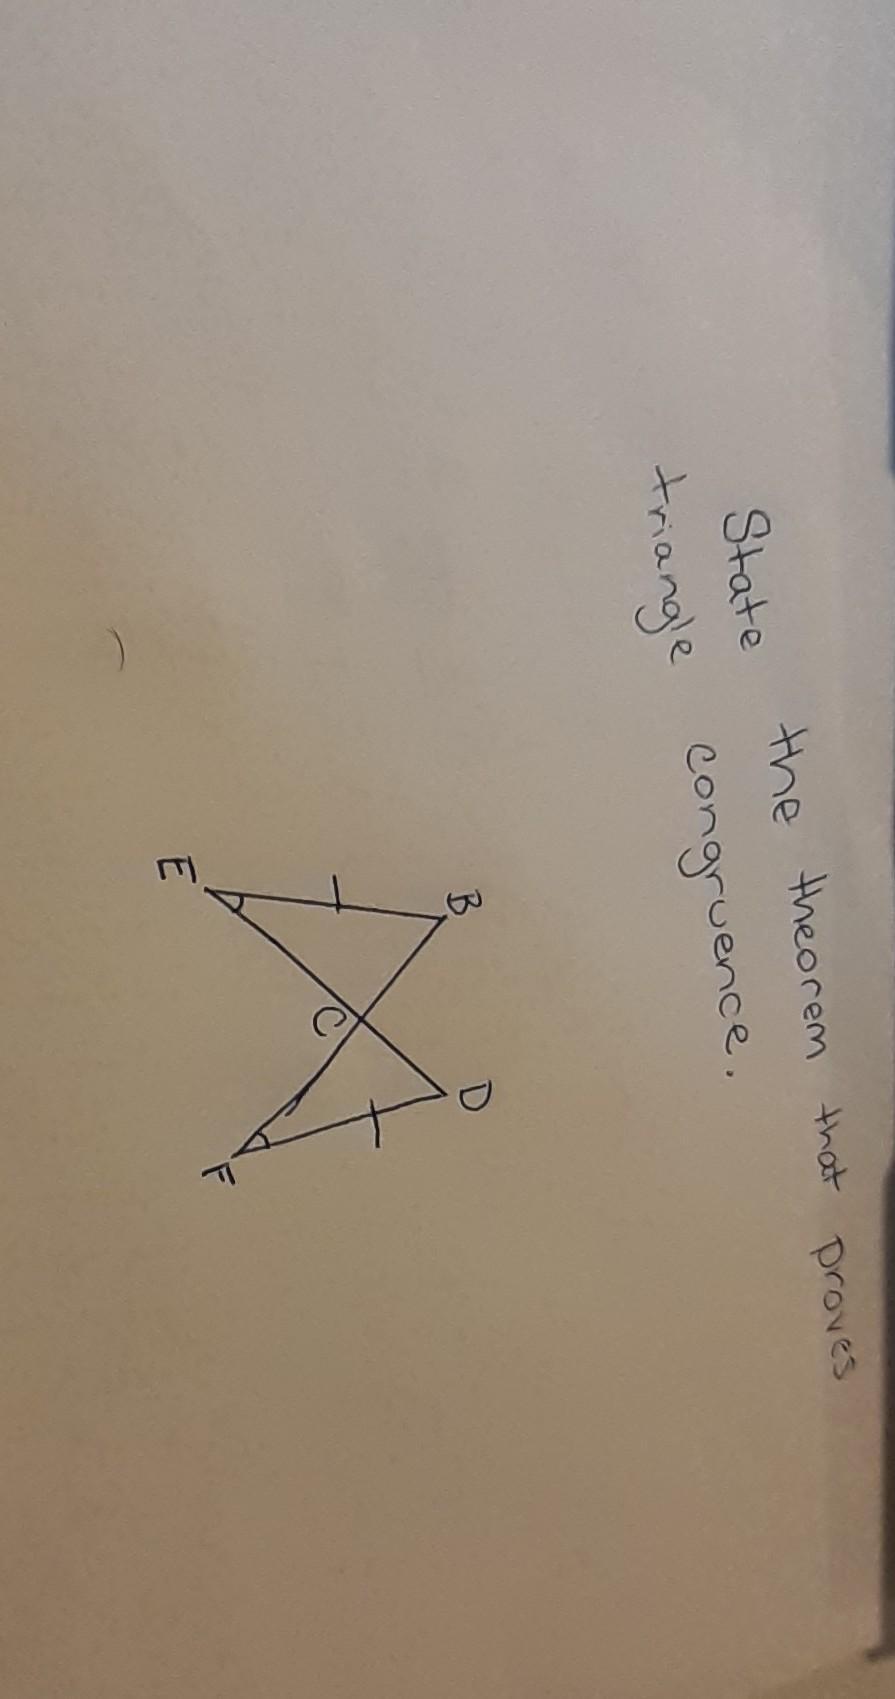 State the theorem that proves
triangle congruence.
B
D
C
E
F